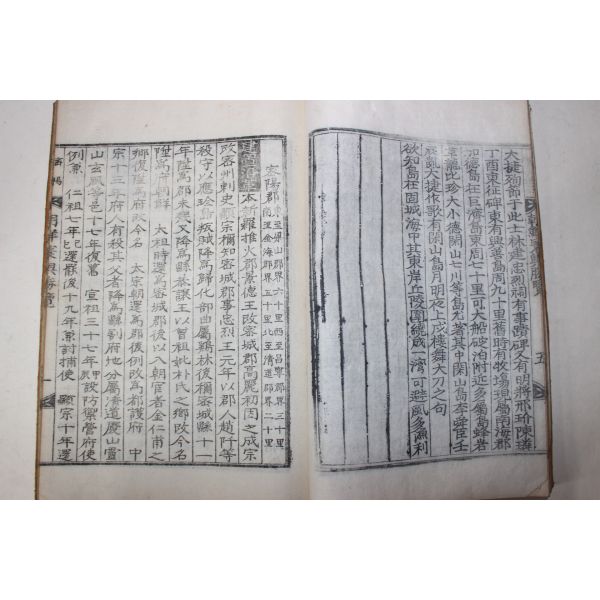 大捷
丁酉東征碑東有興善島周九十里舊時有牧場現屬南海郡
加德島在巨濟島東周七十里可大船碇泊附近多屬島蜂岩
比珍大小德閑山七川等島尤著其中閑山島李舜臣壬
辰亂大捷作歌有閑山島月明夜上戍樓撫大刀之句
欲知島在固城海中其東岸丘陵圍繞成一湾可避風多漁利
五
密陽郡
建置沿革 本新羅推火郡景德王改密城郡高麗初因之成宗
改密州刺史顯宗稱知密城郡事忠烈王元年以郡人趙阡等
殺守以應珍島叛賊降爲歸化部曲屬鷄林後稱密城縣十一
年陞爲郡未幾又降爲縣恭讓王以曾祖妣朴氏之鄉改今名
陞爲府 太祖時還爲密城郡後以入朝宦者金仁甫之
鄉復陞爲府改今名 太宗朝還爲郡後例改爲都護府 中
宗十三年府人有殺其父者降爲縣割府地分屬清道慶山靈
山玄風等邑十七年復舊 宣祖三十七年甲辰設防禦營府使
例兼 仁祖七年己巳還罷後十九年兼討捕使 顯宗十年還
密陽
一